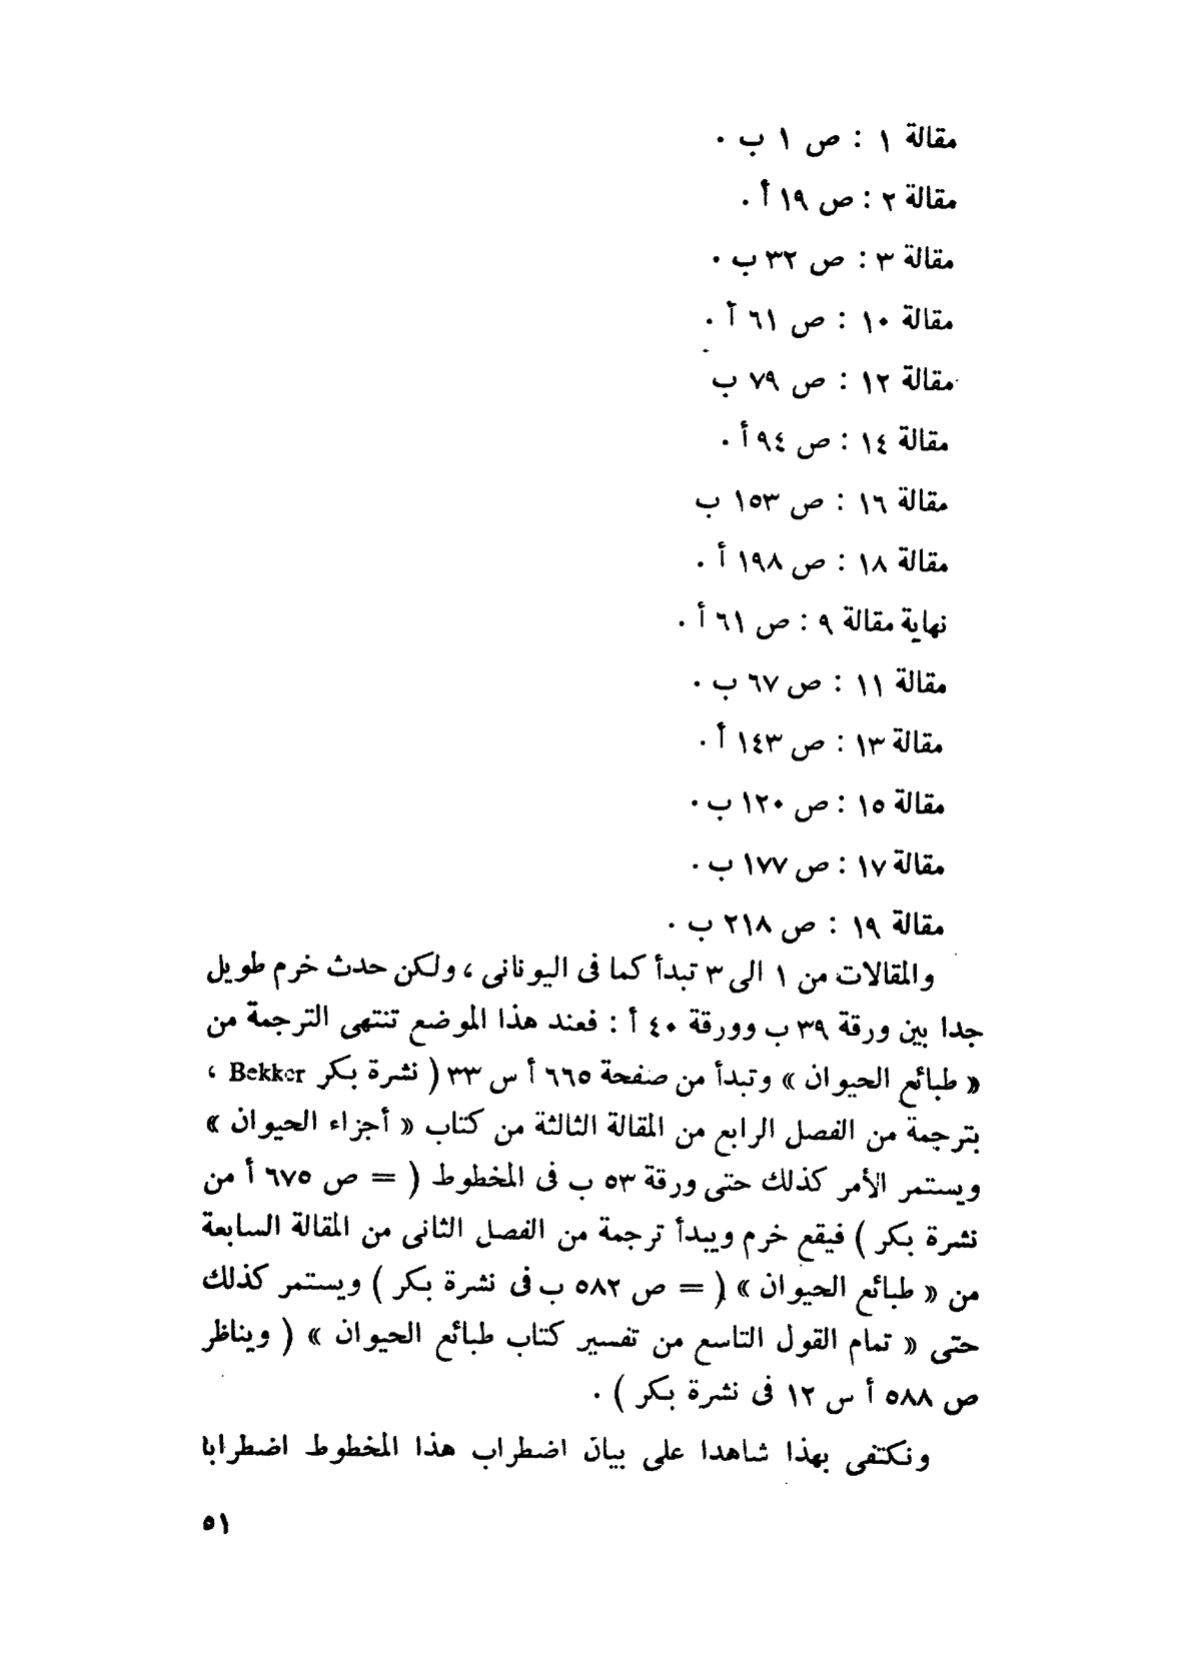 مقالة ١ : ص ١ ب .
مقالة ٢ : ص ١٩ أ .
مقالة ٣ : ص ٣٢ ب .
مقالة ١٠ : ص ٦١ أ .
مقالة ١٢ : ص ٧٩ ب
مقالة ١٤ : ص ٩٤ أ .
مقالة ١٦ : ص ١٥٣ ب
مقالة ١٨ : ص ١٩٨ أ .
نهاية مقالة ٩ : ص ٦١ أ .
مقالة ١١ : ص ٦٧ ب .
مقالة ١٣ : ص ١٤٣ أ .
مقالة ١٥ : ص ١٢٠ ب .
مقالة ١٧ : ص ١٧٧ ب .
مقالة ١٩ : ص ٢١٨ ب .
والمقالات من ١ الى ٣ تبدأ كما فى اليونانى ، ولكن حدث خرم طويل
جدا بين ورقة ٣٩ ب وورقة ٤٠ أ : فعند هذا الموضع تنتهى الترجمة من
« طبائع الحيوان » وتبدأ من صفحة ٦٦٥ أ س ٣٣ ( نشرة بكر Bekker ،
بترجمة من الفصل الرابع من المقالة الثالثة من كتاب « أجزاء الحيوان »
ويستمر الأمر كذلك حتى ورقة ٥٣ ب فى المخطوط ( = ص ٦٧٥ أ من
نشرة بكر ) فيقع خرم ويبدأ ترجمة من الفصل الثانى من المقالة السابعة
من « طبائع الحيوان » ( = ص ٥٨٢ ب فى نشرة بكر ) ويستمر كذلك
حتى « تمام القول التاسع من تفسير كتاب طبائع الحيوان » ( ويناظر
ص ٥٨٨ أ س ١٢ فى نشرة بكر ) .
ونكتفى بهذا شاهدا على بيان اضطراب هذا المخطوط اضطرابا
٥١